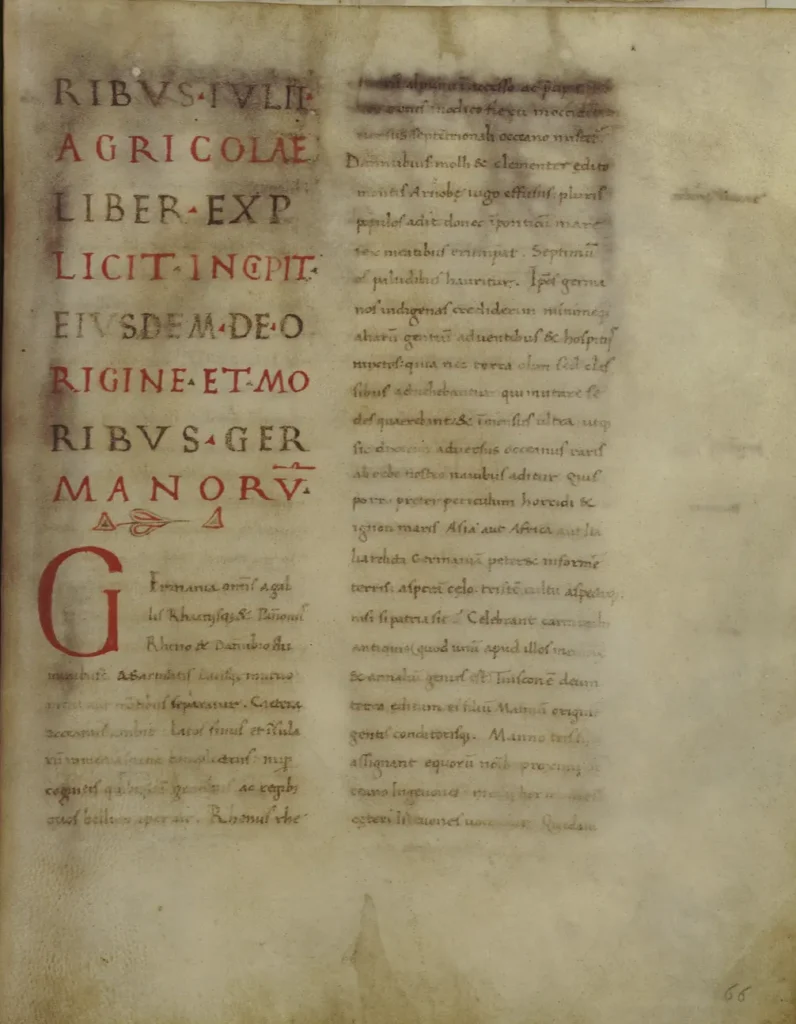 RIBVS·IVLII·
AGRICOLAE
LIBER·EXP
LICIT·INCIPIT·
EIVSDEM·DE·O
RIGINE·ET·MO
RIBVS·GER
MANORV̅·
G
Ermania omnis a gal
lis Rhaetisq; & Pannoniis
Rheno & Danubio flu
minibus: A Sarmatis Dacisq; mutuo
metu aut montibus separatur. Caetera
occeanus ambit latos sinus et insula
cognitis ac regibs
quos bellum aperuit. Rhenus rhe
alpium accesso ac
modico flexu in occidente
uersus septemtrionali occeano miscet.
Danubius molli & clementer edito
montis Arnobe iugo effusus pluris
populos adit donec ī ponticū mare
sex meatibus erumpat. Septimū
os paludibus hauritur. Ipos germa
nos indigenas crediderim minimeq;
aliarū gentiū aduentibus & hospitiis
mixtos: quia nec terra olim sed clas
sibus aduehebantur qui mutare se
des quaerebant: & īmensus ultra utq;
sic aduersus occeanus raris
ab orbe nostro nauibus aditur. Quis
porro preter periculum horridi &
ignoti maris Asia aut Africa aut Ita
lia relicta Germaniā peteret informē
terris: asperā celo. tristē cultu aspectuq;
nisi si patria sit. Celebrant carminibus
antiquis quod unū apud illos
& annaliū genus est Tuisconē deum
terra editum et filiū Mannū origine
gentis conditorisq. Manno tris
assignant equorū nōib proximi
ceano Ingeuones
ceteri Isteuones uocantur. Quidam
66